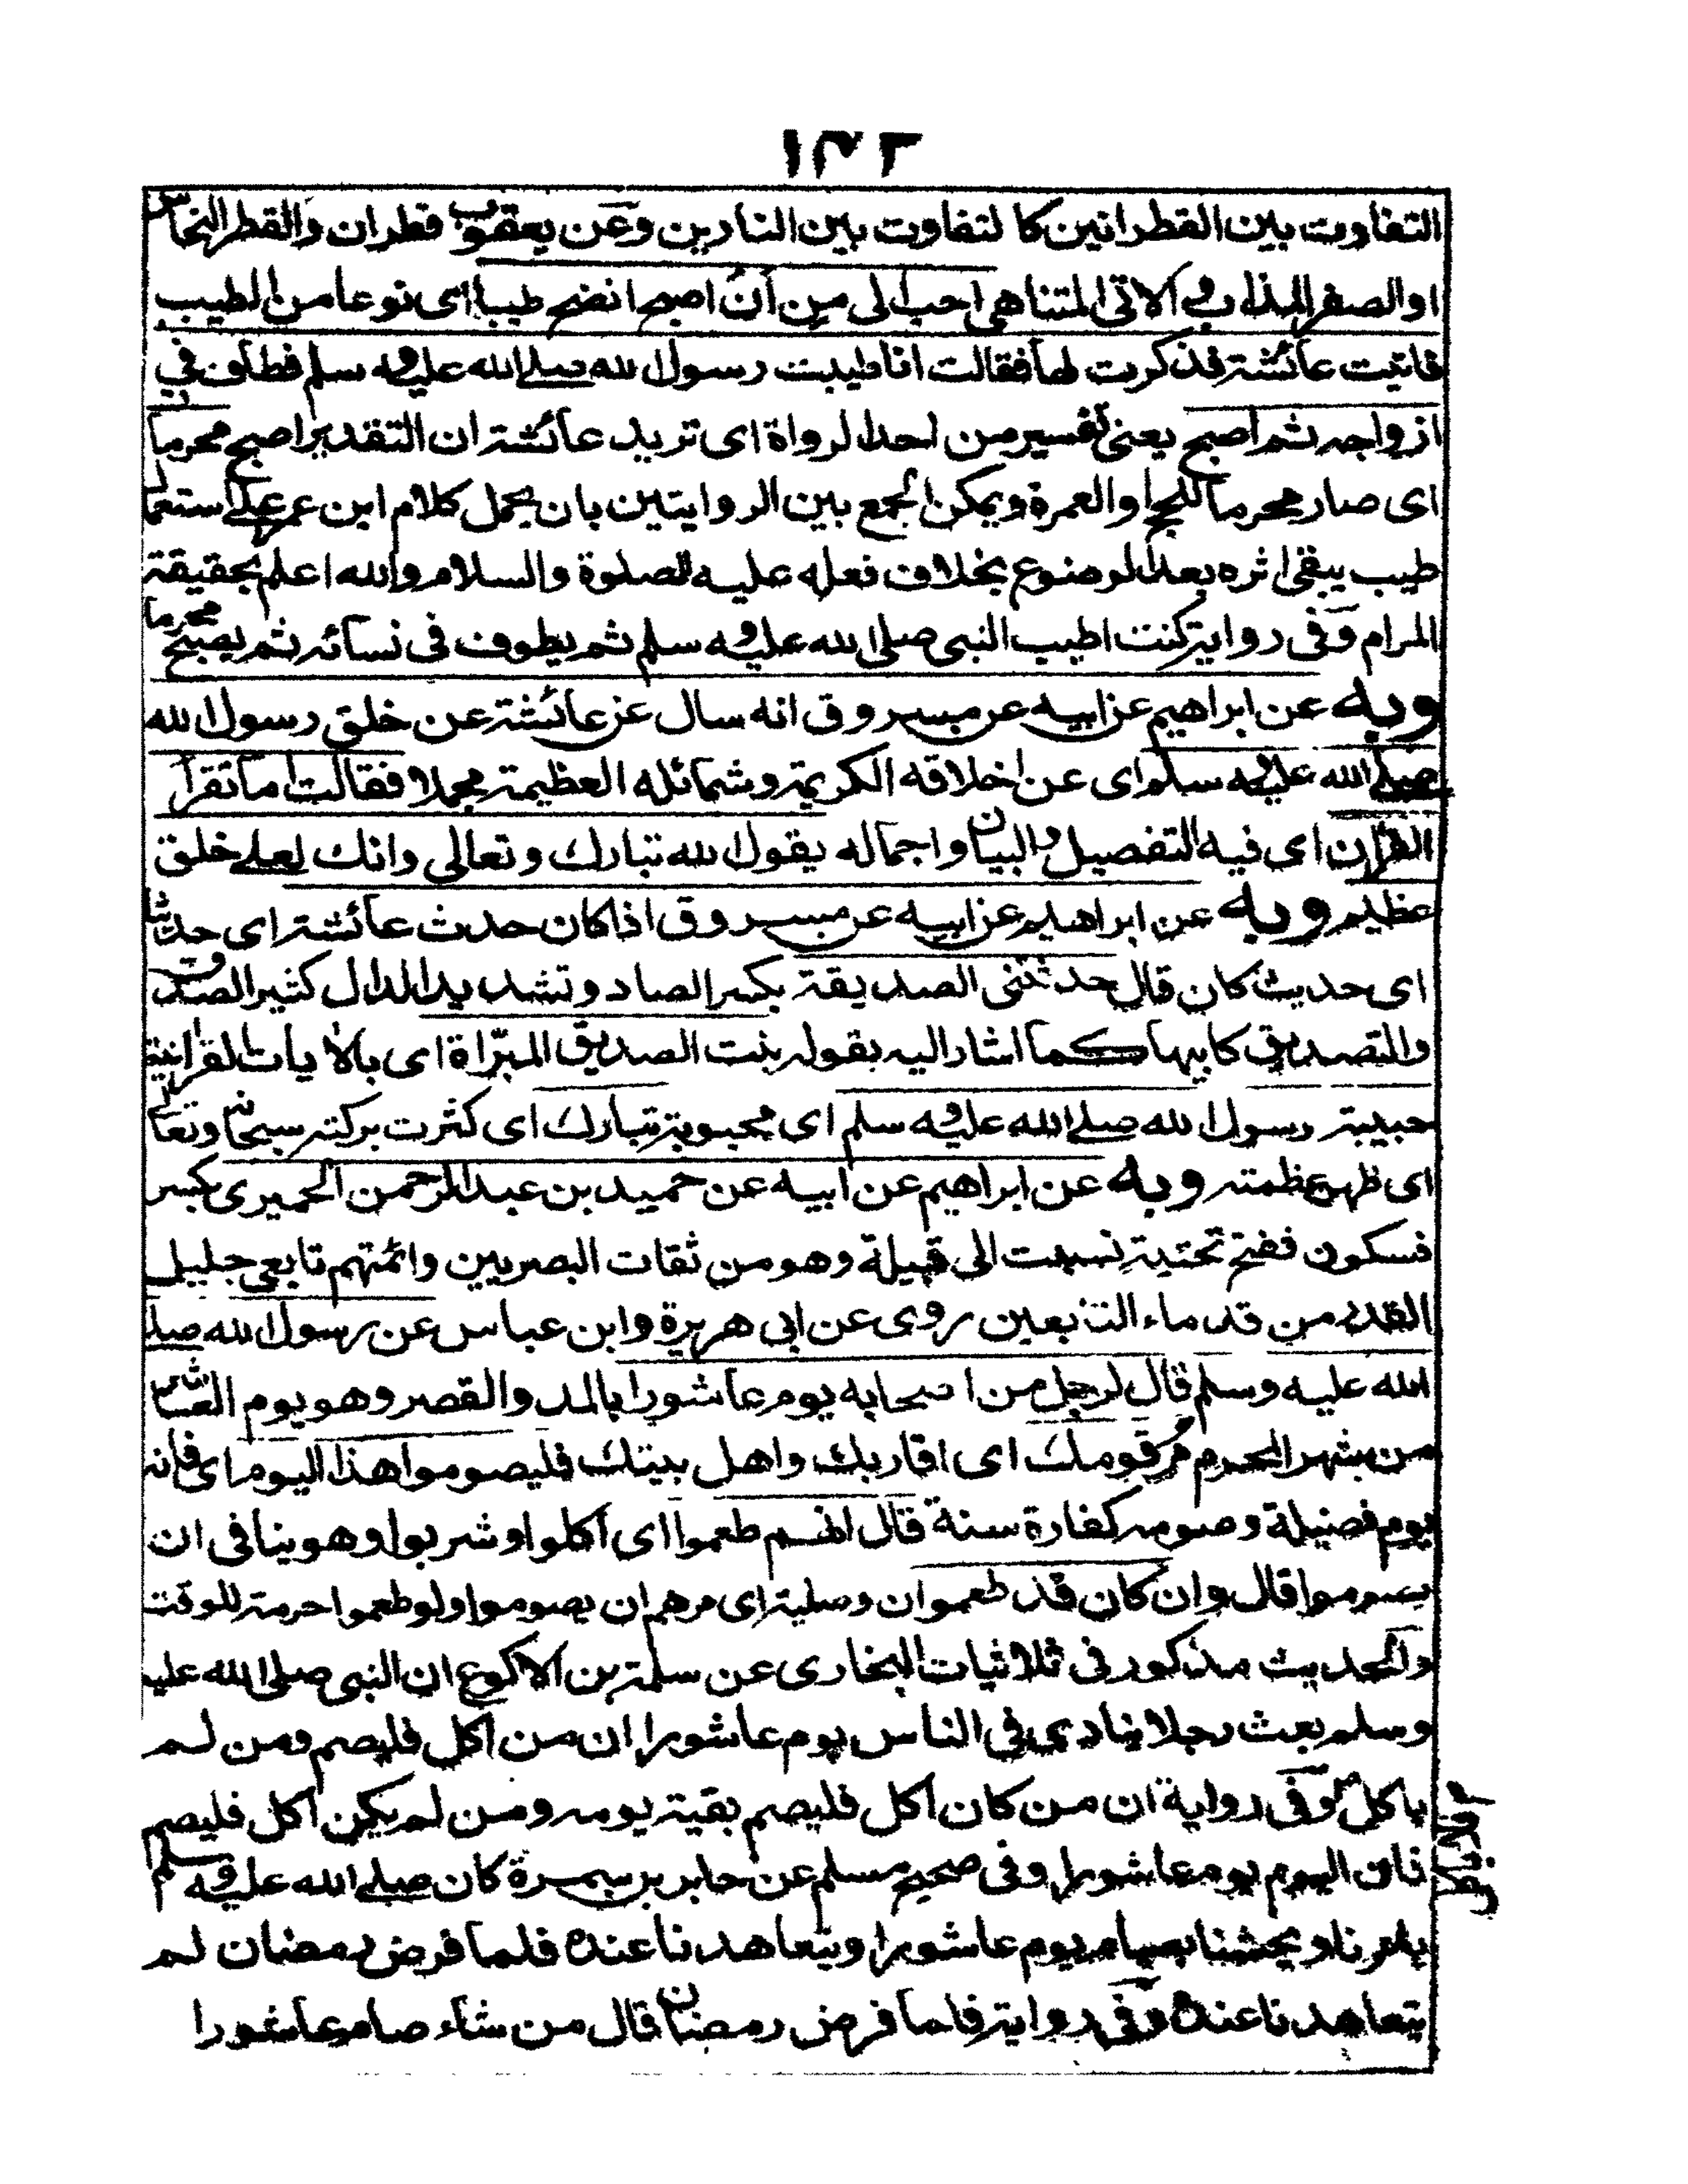 ١٣٦
التفاوت بين القطرانين كا لتفاوت بين النارين وعن يعقوب قطران والقطر النحاس
او الصفر المذاب والاتى المتناهى احب الى من أن اصبح انضح طيبا اى نوعا من الطيب
فاتيت عائشة فذكرت لها فقالت انا طيبت رسول الله صلى الله عليه وسلم فطاف في
ازواجه ثم اصبح يعنى تفسير من احد الرواة اى تريد عائشة ان التقدير اصبح محرما
اى صار محرما للحج او العمرة ويمكن الجمع بين الروايتين بان يحمل كلام ابن عمر على استعمال
طيب يبقى اثره بعد الوضوء بخلاف فعله عليه الصلوة والسلام والله اعلم بحقيقة
المرام وفى رواية كنت اطيب النبى صلى الله عليه وسلم ثم يطوف فى نسائه ثم يصبح محرما
وبه عن ابراهيم عن ابيه عن مسروق انه سال عن عائشة عن خلق رسول الله
صلى الله عليه وسلم اى عن اخلاقه الكريمة وشمائله العظيمة مجملا فقالت اما تقرأ
القرآن اى فيه التفصيل والبيان واجماله يقول الله تبارك وتعالى وانك لعلى خلق
عظيم وبه عن ابراهيم عن ابيه عن مسروق اذا كان حدث عائشة اى حديثا
اى حديث كان قال حدثتنى الصديقة بكسر الصاد وتشديد الدال كثير الصدق
والتصديق كابيها كما اشار اليه بقوله بنت الصديق المبرّاة اى بالايات القرانية
حبيبة رسول الله صلى الله عليه وسلم اى محبوبة تبارك اى كثرت بركته سبحانه وتعالى
اى ظهر عظمته وبه عن ابراهيم عن ابيه عن حميد بن عبد الرحمن الحميرى بكسر
فسكون ففتح تحتية نسبت الى قبيلة وهو من ثقات البصريين وائمتهم تابعى جليل
القدر من قدماء التابعين روى عن ابى هريرة وابن عباس عن رسول الله صلى
الله عليه وسلم قال لرجل من اصحابه يوم عاشورا بالمد والقصر وهو يوم العاشر
من شهر المحرم مُر قومك اى اقاربك واهل بيتك فليصوموا هذا اليوم اى فانه
يوم فضيلة وصومه كفارة سنة قال انهم طعموا اى اكلوا وشربوا وهو ينافى ان
يصوموا قال وان كان قد طعموا ان وصلية اى مرهم ان يصوموا ولو طعموا حرمة للوقت
والحديث مذكور فى ثلاثيات البخارى عن سلمة بن الاكوع ان النبى صلى الله عليه
وسلم بعث رجلا ينادى فى الناس يوم عاشورا ان من اكل فليصم ومن لم
ياكل وفى رواية ان من كان اكل فليصم بقية يومه ومن لم يكن اكل فليصم
فان اليوم يوم عاشورا وفى صحيح مسلم عن جابر بن سمرة كان صلى الله عليه وسلم
يامرنا ويحثنا بصيام يوم عاشورا ويتعاهدنا عنده فلما فرض رمضان لم
يتعاهدنا عنده وفى رواية فلما فرض رمضان قال من شاء صام عاشورا